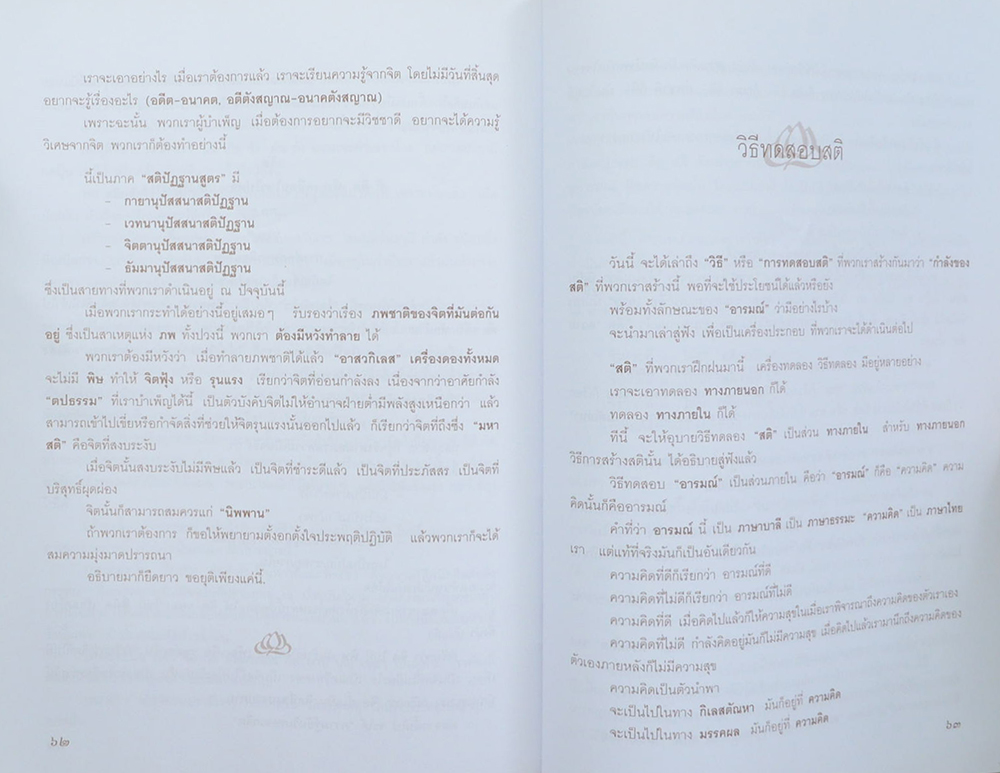 เราจะเอาอย่างไร เมื่อเราต้องการแล้ว เราจะเรียนความรู้จากจิต โดยไม่มีวันที่สิ้นสุด
อยากจะรู้เรื่องอะไร (อดีต-อนาคต, อตีตังสญาณ-อนาคตังสญาณ)
เพราะฉะนั้น พวกเราผู้บำเพ็ญ เมื่อต้องการอยากจะมีวิชชาดี อยากจะได้ความรู้
วิเศษจากจิต พวกเราก็ต้องทำอย่างนี้
นี้เป็นภาค "สติปัฏฐานสูตร" มี
- กายานุปัสสนาสติปัฏฐาน
- เวทนานุปัสสนาสติปัฏฐาน
- จิตตานุปัสสนาสติปัฏฐาน
- ธัมมานุปัสสนาสติปัฏฐาน
ซึ่งเป็นสายทางที่พวกเราดำเนินอยู่ ณ ปัจจุบันนี้
เมื่อพวกเรากระทำได้อย่างนี้อยู่เสมอๆ รับรองว่าเรื่อง ภพชาติของจิตที่มันต่อกัน
อยู่ ซึ่งเป็นสาเหตุแห่ง ภพ ทั้งปวงนี้ พวกเรา ต้องมีหวังทำลาย ได้
พวกเราต้องมีหวังว่า เมื่อทำลายภพชาติได้แล้ว "อาสวกิเลส" เครื่องดองทั้งหมด
จะไม่มี พิษ ทำให้ จิตฟุ้ง หรือ รุนแรง เรียกว่าจิตที่อ่อนกำลังลง เนื่องจากว่าอาศัยกำลัง
"ตปธรรม" ที่เราบำเพ็ญได้นี้ เป็นตัวบังคับจิตไม่ให้อำนาจฝ่ายต่ำมีพลังสูงเหนือกว่า แล้ว
สามารถเข้าไปเขี่ยหรือกำจัดสิ่งที่ช่วยให้จิตรุนแรงนั้นออกไปแล้ว ก็เรียกว่าจิตที่ถึงซึ่ง "มหา
สติ" คือจิตที่สงบระงับ
เมื่อจิตนั้นสงบระงับไม่มีพิษแล้ว เป็นจิตที่ชำระดีแล้ว เป็นจิตที่ประภัสสร เป็นจิตที่
บริสุทธิ์ผุดผ่อง
จิตนั้นก็สามารถสมควรแก่ "นิพพาน"
ถ้าพวกเราต้องการ ก็ขอให้พยายามตั้งอกตั้งใจประพฤติปฏิบัติ แล้วพวกเราก็จะได้
สมความมุ่งมาดปรารถนา
อธิบายมาก็ยืดยาว ขอยุติเพียงแค่นี้.
๖๒
วิธีทดสอบสติ
วันนี้ จะได้เล่าถึง "วิธี" หรือ "การทดสอบสติ" ที่พวกเราสร้างกันมาว่า "กำลังของ
สติ" ที่พวกเราสร้างนี้ พอที่จะใช้ประโยชน์ได้แล้วหรือยัง
พร้อมทั้งลักษณะของ "อารมณ์" ว่ามีอย่างไรบ้าง
จะนำมาเล่าสู่ฟัง เพื่อเป็นเครื่องประกอบ ที่พวกเราจะได้ดำเนินต่อไป
"สติ" ที่พวกเราฝึกฝนมานี้ เครื่องทดลอง วิธีทดลอง มีอยู่หลายอย่าง
เราจะเอาทดลอง ทางภายนอก ก็ได้
ทดลอง ทางภายใน ก็ได้
ทีนี้ จะให้อุบายวิธีทดลอง "สติ" เป็นส่วน ทางภายใน สำหรับ ทางภายนอก
วิธีการสร้างสตินั้น ได้อธิบายสู่ฟังแล้ว
วิธีทดสอบ "อารมณ์" เป็นส่วนภายใน คือว่า "อารมณ์" ก็คือ "ความคิด" ความ
คิดนั้นก็คืออารมณ์
คำที่ว่า อารมณ์ นี้ เป็น ภาษาบาลี เป็น ภาษาธรรมะ "ความคิด" เป็น ภาษาไทย
เรา แต่แท้ที่จริงมันก็เป็นอันเดียวกัน
ความคิดที่ดีก็เรียกว่า อารมณ์ที่ดี
ความคิดที่ไม่ดีก็เรียกว่า อารมณ์ที่ไม่ดี
ความคิดที่ดี เมื่อคิดไปแล้วก็ให้ความสุขในเมื่อเราพิจารณาถึงความคิดของตัวเราเอง
ความคิดที่ไม่ดี กำลังคิดอยู่มันก็ไม่มีความสุข เมื่อคิดไปแล้วเรามานึกถึงความคิดของ
ตัวเองภายหลังก็ไม่มีความสุข
ความคิดเป็นตัวนำพา
จะเป็นไปในทาง กิเลสตัณหา มันก็อยู่ที่ ความคิด
จะเป็นไปในทาง มรรคผล มันก็อยู่ที่ ความคิด
๖๓